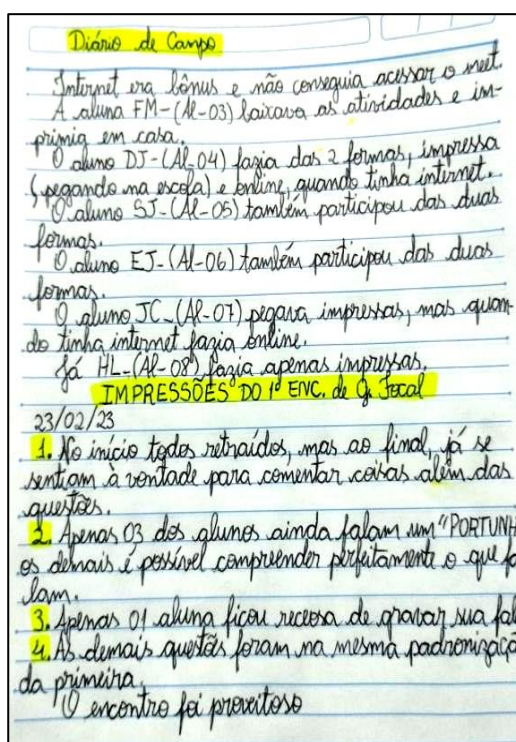 Diário de Campo
Internet era bônus e não conseguia acessar o meet.
A aluna FM-(Al-03) baixava as atividades e im-
primia em casa.
O aluno DJ-(Al-04) fazia das 2 formas, impressa
(pegando na escola) e online, quando tinha internet.
O aluno SJ-(Al-05) também participou das duas
formas.
O aluno EJ-(Al-06) também participou das duas
formas.
O aluno JC-(Al-07) pegava impressas, mas quan-
do tinha internet fazia online.
Já HL-(Al-08) fazia apenas impressas.
IMPRESSÕES DO 1º ENC. de G. Focal
23/02/23
1. No início todos retraídos, mas ao final, já se
sentiam à vontade para comentar coisas além das
questões.
2. Apenas 03 dos alunos ainda falam um "PORTUNH
os demais é possível compreender perfeitamente o que fa
lam.
3. Apenas 01 aluna ficou receosa de gravar sua fal
4. As demais questões foram na mesma padronizaçã
da primeira.
O encontro foi proveitoso